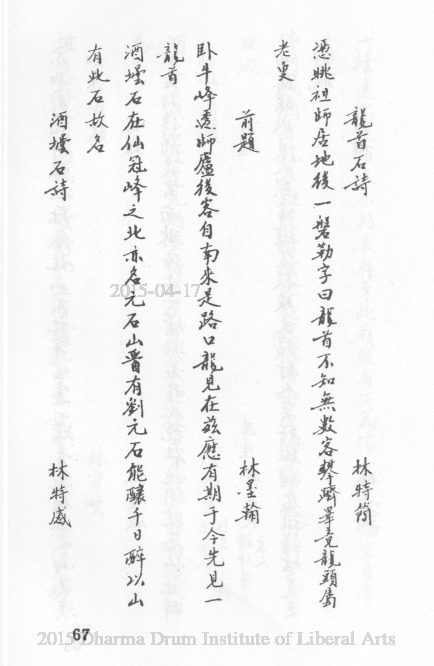 龍首石詩　林特簡
憑眺祖師居地後一磐勒字曰龍首不知無數客攀躋畢竟龍頭屬
老叟
前題　林墨翰
卧牛峰遶師廬後客自南來是路口龍見在兹應有期于今先見一
龍首
酒壜石在仙冠峰之北亦名元石山晋有劉元石能釀千日醉以山
有此石故名
酒壜石詩　林特威
67
2015-04-17
2015 Dharma Drum Institute of Liberal Arts